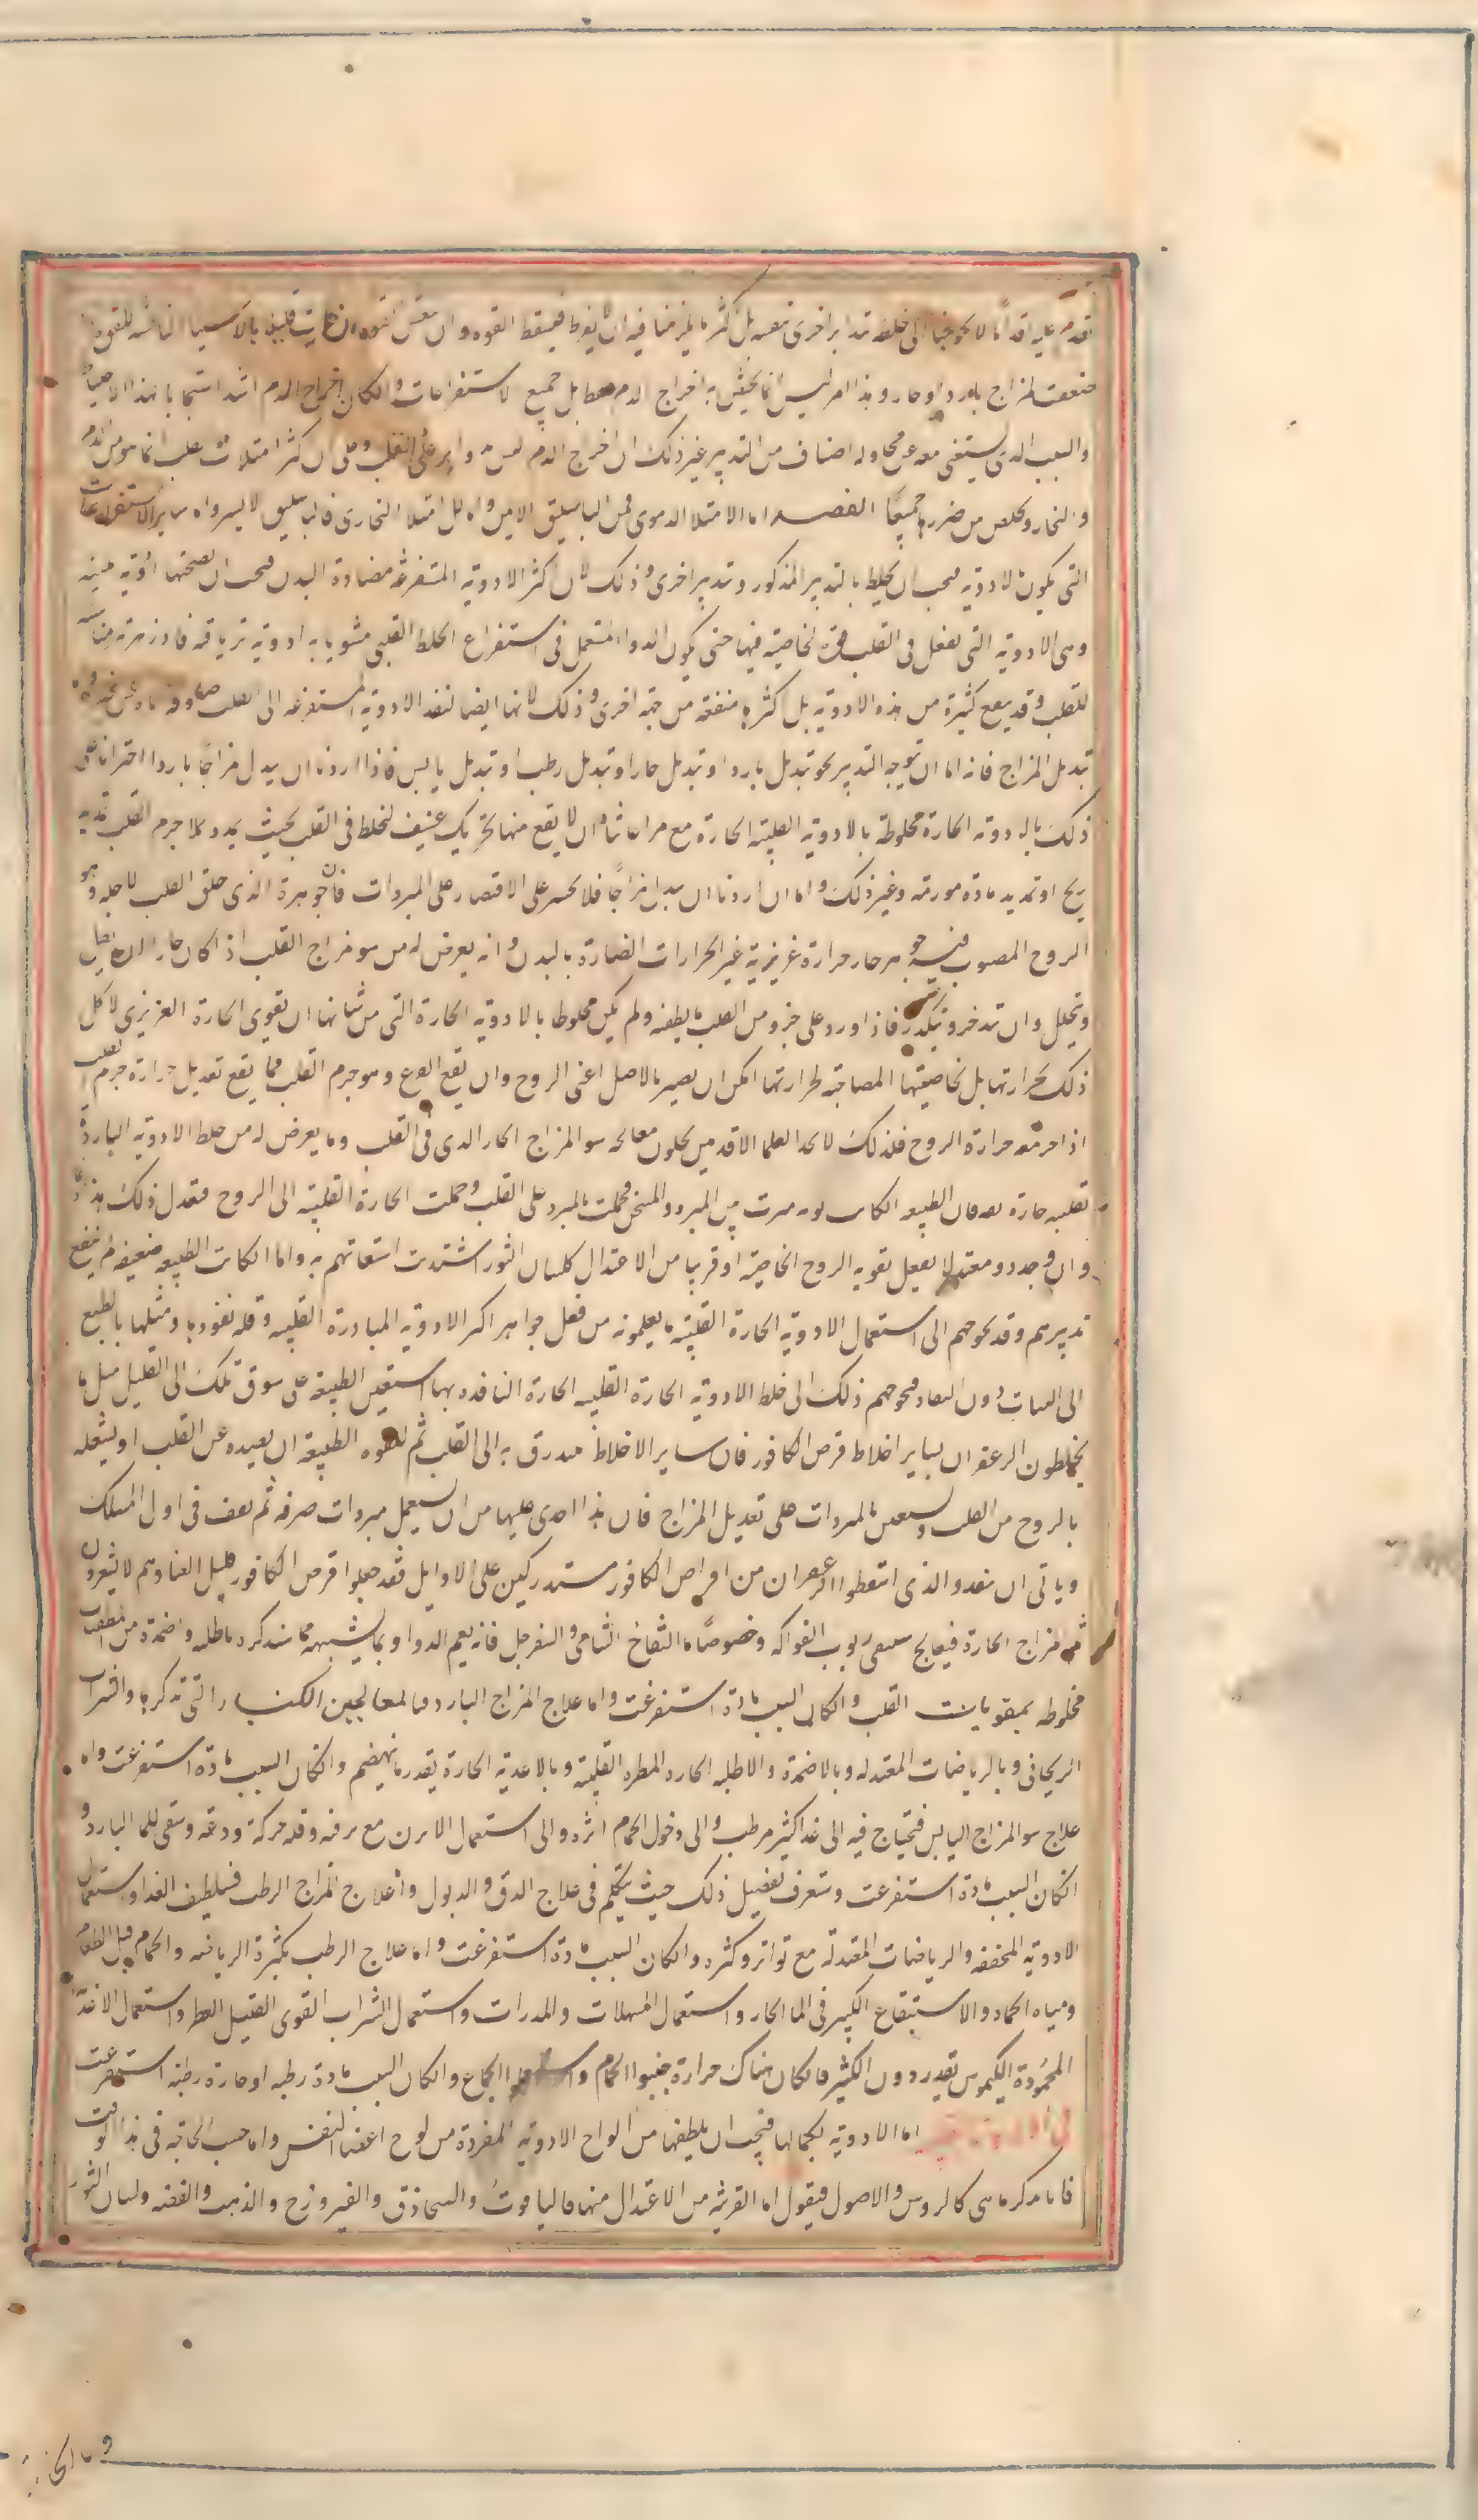 نقدم عليه اقداما لا يحوجنا الى خلطه تدابير اخرى تتعبه بل اكثر ما يلزمنا فيه ان لا يفرط فيسقط القوه وان القوه ان خارت قليلا بالاشيا الناعشه للقوه
ضعفت لمزاج بارد او حار وهذا امر ليس انما يختص به اخراج الدم فقط بل جميع الاستفراغات والكان اخراج الدم اشد استيجابا لهذا الاحتياط
والسبب الدى يستغنى معه عن محاوله اصناف من التدبير غير ذلك ان اخرج الدم ليس دواير على القلب وعلى ان اكثر امتلات القلب انما هو من الدم
والبخار ويخلص من ضررهما جميعًا الفصد اما الامتلا الدموى فمن الباسليق الايمن واما الامتلا البخارى فالباسليق الايسر واما ساير الاستفراغات
التى يكون بالادويه فيجب ان يخلط بالتدبير المذكور وتدبير اخرى وذلك لان اكثر الادويه المستفرغه مضادة البدن فيجب ان يصحبها ادويه
وهى الادويه التى يفعل فى القلب قوة لخاصية فيها حتى يكون الدوا المستعمل فى استفراغ الخلط القلبى مشوبا به ادويه ترياقيه فادزهريه مناسبه
للقلب وقد ينفع كثيرة من هذه الادويه بل اكثرها منفعه من جهة اخرى وذلك لانها ايضا تنفذ الادويه المستفرغه الى القلب
تبديل المزاج فانه اما ان توجه التدبير نحو تبديل بارد او تبديل حار او تبديل رطب او تبديل يابس فاذا اردنا ان يبدل مزاجا باردا اجترانا على
ذلك بالادويه الحارة مخلوطة بالادويه القلبيه الحارة مع مراعاتنا ان لا يقع منها تحريك عنيف لخلط فى القلب بحيث يمدد جرم القلب تمديد
ريح او تمديد مادة مورمه وغير ذلك واما ان اردنا ان يبدل مزاجًا فلا نجسر على الاقتصار على المبردات فان جوهرة الذى خلق القلب لاجله وهو
الروح المصبوب فيه جوهر حار حرارة غريزية غير الحرارات الضارة بالبدن وانه يعرض له من سو مزاج القلب اذ اكان حارا ان يقل
ويحلل وان تدخر ويتكدر فاذا اورد على جزو من القلب ما يطفيه ولم يكن مخلوطا بالادويه الحارة التى من شانها ان تقوى الحارة الغريزى لا كل
ذلك بحرارتها بل بخاصيتها المصاحبة لحرارتها امكن ان يضر بالاصل اعنى الروح وان نفع الفرع وهو جرم القلب فما نفع تعديل حرارة جرم القلب
اذا اخرمعه حرارة الروح فلذلك لا تجد العلما الاقدمين يحلون معالجه سو المزاج الحار الدى فى القلب وما يعرض له من خلط الادويه الباردة
بقلبيه حارة فان الطبيعه الكانت قويه ميزت بين المبرد والمسخن فحملت بالمبرد على القلب وحملت الحارة القلبيه الى الروح فتعدل ذلك
وان وجدوا معتدلا يفعل تقويه الروح الخاصيه او قريبا من الاعتدال كلسان الثور اشتدت استعانتهم به واما الكانت الطبيعه ضعيفه لم ينفع
تدبيرهم وقد يحوجهم الى استعمال الادويه الحارة القلبيه ما يعلمونه من ثقل جواهر اكثر الادويه الباردة القلبيه وقله نفوذها وميلها بالطبع
الى الثبات دون النفاد فيحوجهم ذلك الى خلط الادويه الحارة القلبيه الحارة النافذه بها ليستعين الطبيعة على سوق تلك الى القليل مثل ما
يخلطون الزعفران بساير اخلاط قرص الكافور فان ساير الاخلاط يبدرق به الى القلب ثم للقوه الطبيعة ان يصده عن القلب او يشغله
بالروح من القلب ويستعين بالمبردات على تعديل المزاج فان هذا اجدى عليها من ان يستعمل مبردات صرفه ثم يقف فى اول المسلك
وياتى ان ينفد والذى اسقطوا الزعفران من اقراص الكافور مستدركين على الاوايل فقد جعلوا قرص الكافور قليل الغنا وهم لا يشعرون
ثم مزاج الحارة فيعالج بسقى ربوب الفواكه وخصوصًا ما التفاح الشامى والسفرجل فانه نعم الدوا وبما يشبهه مما سنذكره باطليه واضمدة من
مخلوطه بمقويات القلب والكان السبب مادة استفرغت واما علاج المزاج البارد فبالمعاجين الكبار التى نذكرها والشراب
الريحانى وبالرياضات المعتدله وبالاضمدة والاطليه الحاره العطره القلبيه وبالاغذيه الحارة بقدر ما ينهضم والكان السبب مادة استفرغت واما
علاج سو المزاج اليابس فتحتاج فيه الى غذا كثير مرطب والى دخول الحمام اثره والى استعمال الابزن مع ترفه وقله حركة ودعه وسقى للما البارد و
انكان السبب مادة استفرغت وستعرف تفصيل ذلك حيث نتكلم فى علاج الدق والدبول واما علاج المزاج الرطب فتلطيف الغذا واستعمال
الادويه المجففه والرياضات المعتدله مع تواتر وكثره والكان السبب مادة استفرغت واما علاج الرطب بكثرة الرياضه والحمام قبل الطعام
ومياه الحماه والاستنقاع الكبير فى الما الحار واستعمال المسهلات والمدرات واستعمال الشراب القوى القليل العطر واستعمال الاغذيه
المحمودة الكيموس بقدر دون الكثير فان كان هناك حرارة جنبوا الحمام واستعملوا الجماع والكان السبب مادة رطبه او حارة رطبه استفرغت
اما الادويه بكمالها فيجب ان يلتقطها من الواح الادويه المفردة من لوح اعضا النفس واما حسب الحاجه فى هذا الوقت
فانا نذكر ما هى كالروس والاصول فنقول اما القريبه من الاعتدال منها فالياقوت والسبحاذق والفيروزج والذهب والفضه ولسان الثور